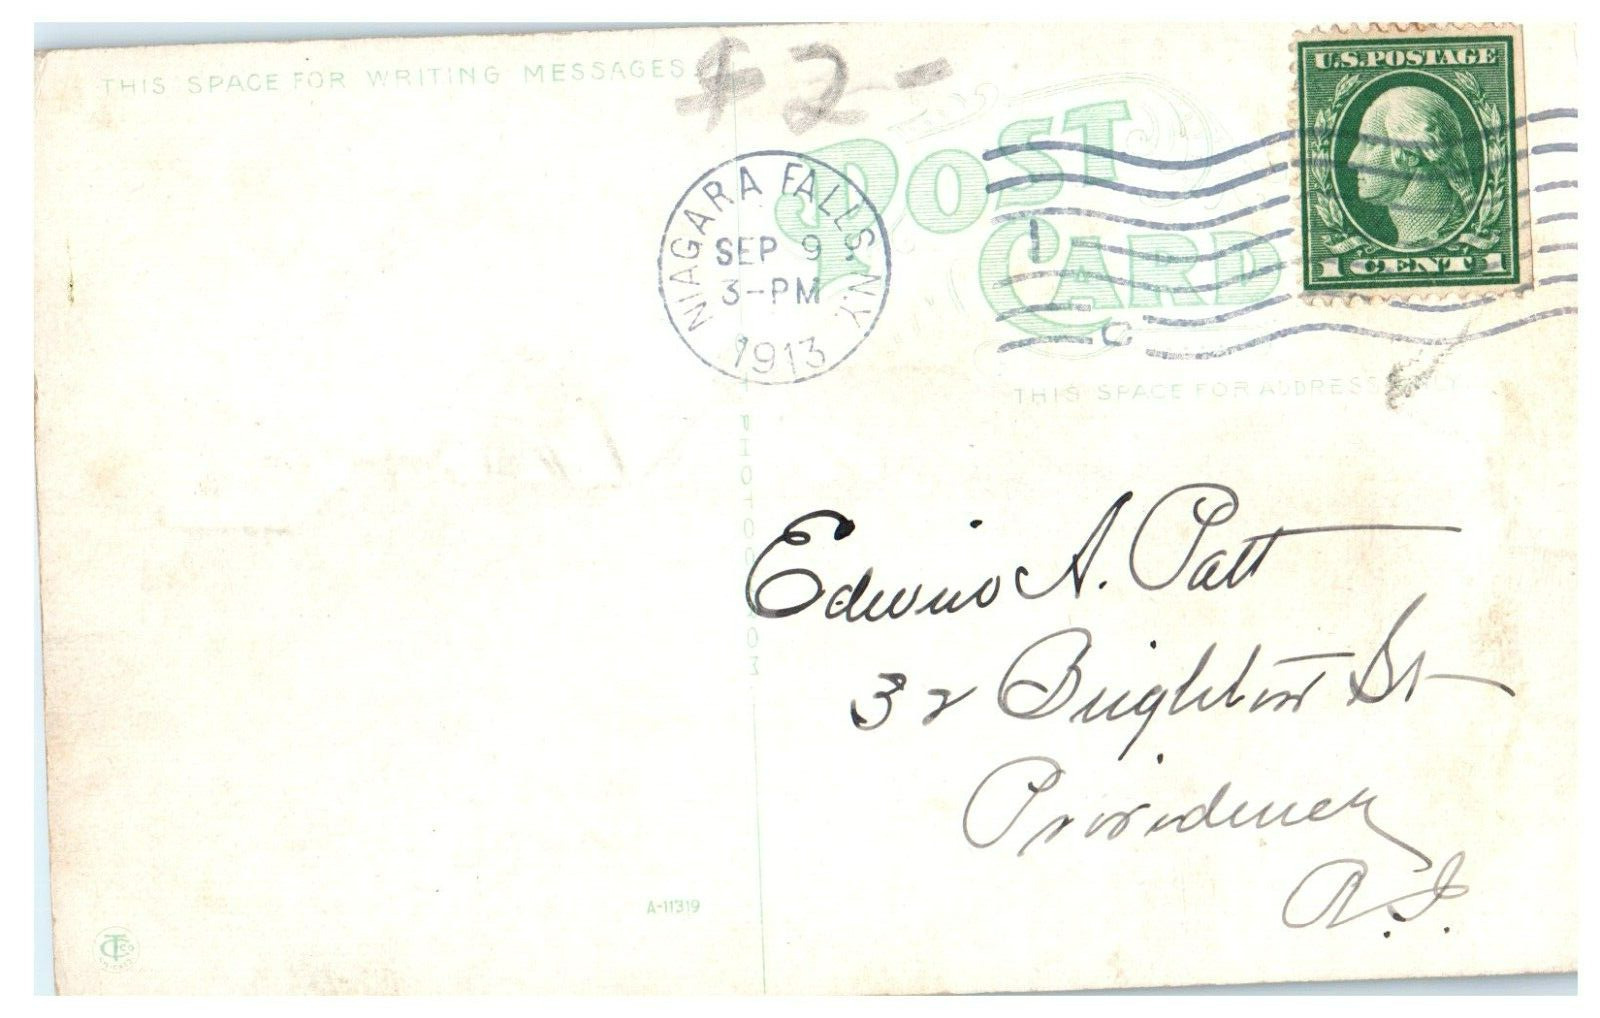 THIS SPACE FOR WRITING MESSAGES.
$2-
POST CARD
U.S. POSTAGE
1 CENT 1
NIAGARA FALLS, N.Y.
SEP 9
3-PM
1913
THIS SPACE FOR ADDRESS ONLY
PHOTOCHROM
Edwin A. Patt
32 Brighton St
Providence
R.I.
A-11319
CT Co